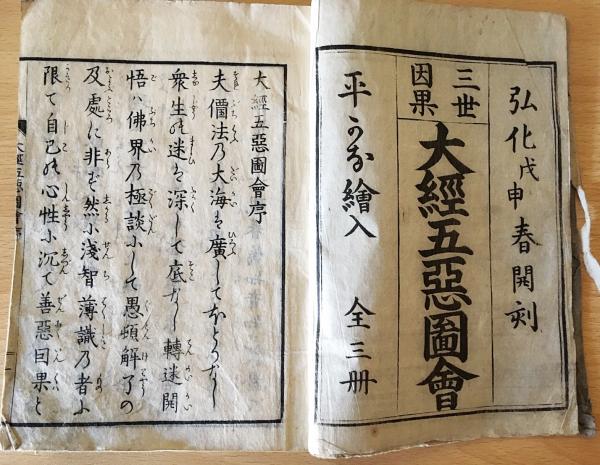 弘化戊申春開刻
三世
因果
大經五惡圖會
平かな繪入 全三册
大經五惡圖會序
夫僧法乃大海は廣してほとりなし
衆生の迷は深して底なし轉迷開
悟ハ佛界乃極談にして愚頓解了の
及處に非ず然に淺智薄識乃者は
限て自己の心性に沉て善惡因果と
大經五惡圖會序